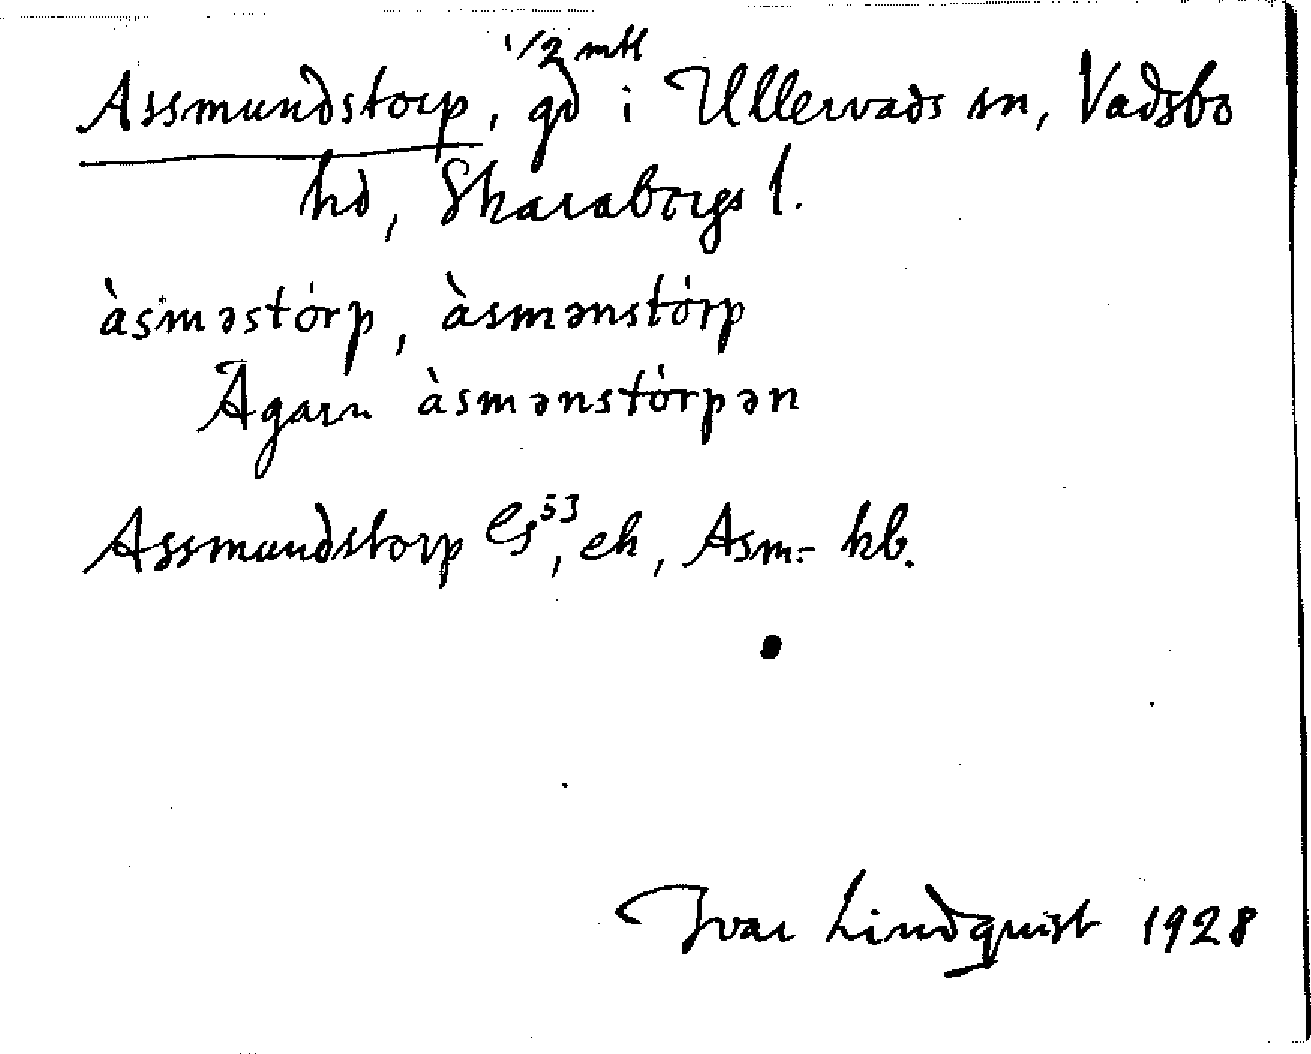 Assmundstorp, 1/2 mtl gd i Ullervads sn, Vadsbo
hd, Skaraborgs l.
àsməstórp, àsmənstórp
Ägarn àsmənstórpən
Assmundstorp GS 53, ek, Asm:- kb.
Ivar Lindquist 1928